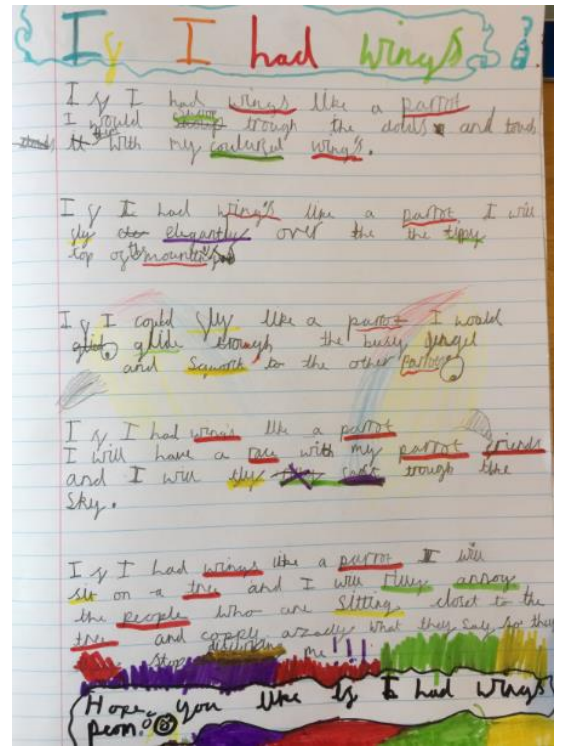 If I had wings
If I had wings like a parrot
I would through the clouds and touch
with my coulurful wing's.
If I had wing's like a parrot I will
fly elegantly over the the tippy
top of the
If I could fly like a parrot I would
glide trough the busy jungel
and Squork to the other
If I had wing's like a parrot
I will have a race with my parrot friends
and I will fly trough the
Sky.
If I had wings like a parrot I will
sit on a tree and I will annoy
the people who are sitting closest to the
tree and coppy what they say
stop me!!!
Hope you like If I had wings